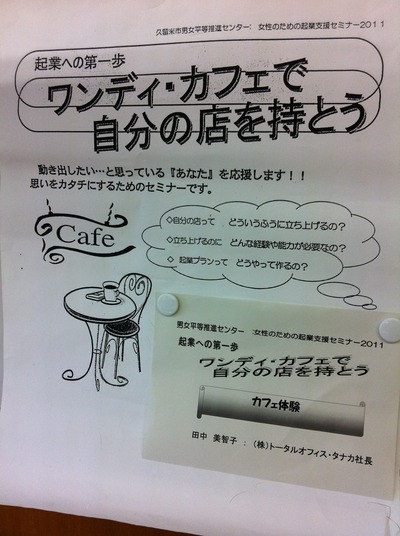 久留米市男女平等推進センター: 女性のための起業支援セミナー2011
起業への第一歩
ワンディ・カフェで
自分の店を持とう
動き出したい…と思っている『あなた』を応援します！！
思いをカタチにするためのセミナーです。
Cafe
◇自分の店って どういうふうに立ち上げるの？
◇立ち上げるのに どんな経験や能力が必要なの？
◇ 起業プランって どうやって作るの？
男女平等推進センター :女性のための起業支援セミナー2011
起業への第一歩
ワンディ・カフェで
自分の店を持とう
カフェ体験
田中 美智子 : (株)トータルオフィス・タナカ社長